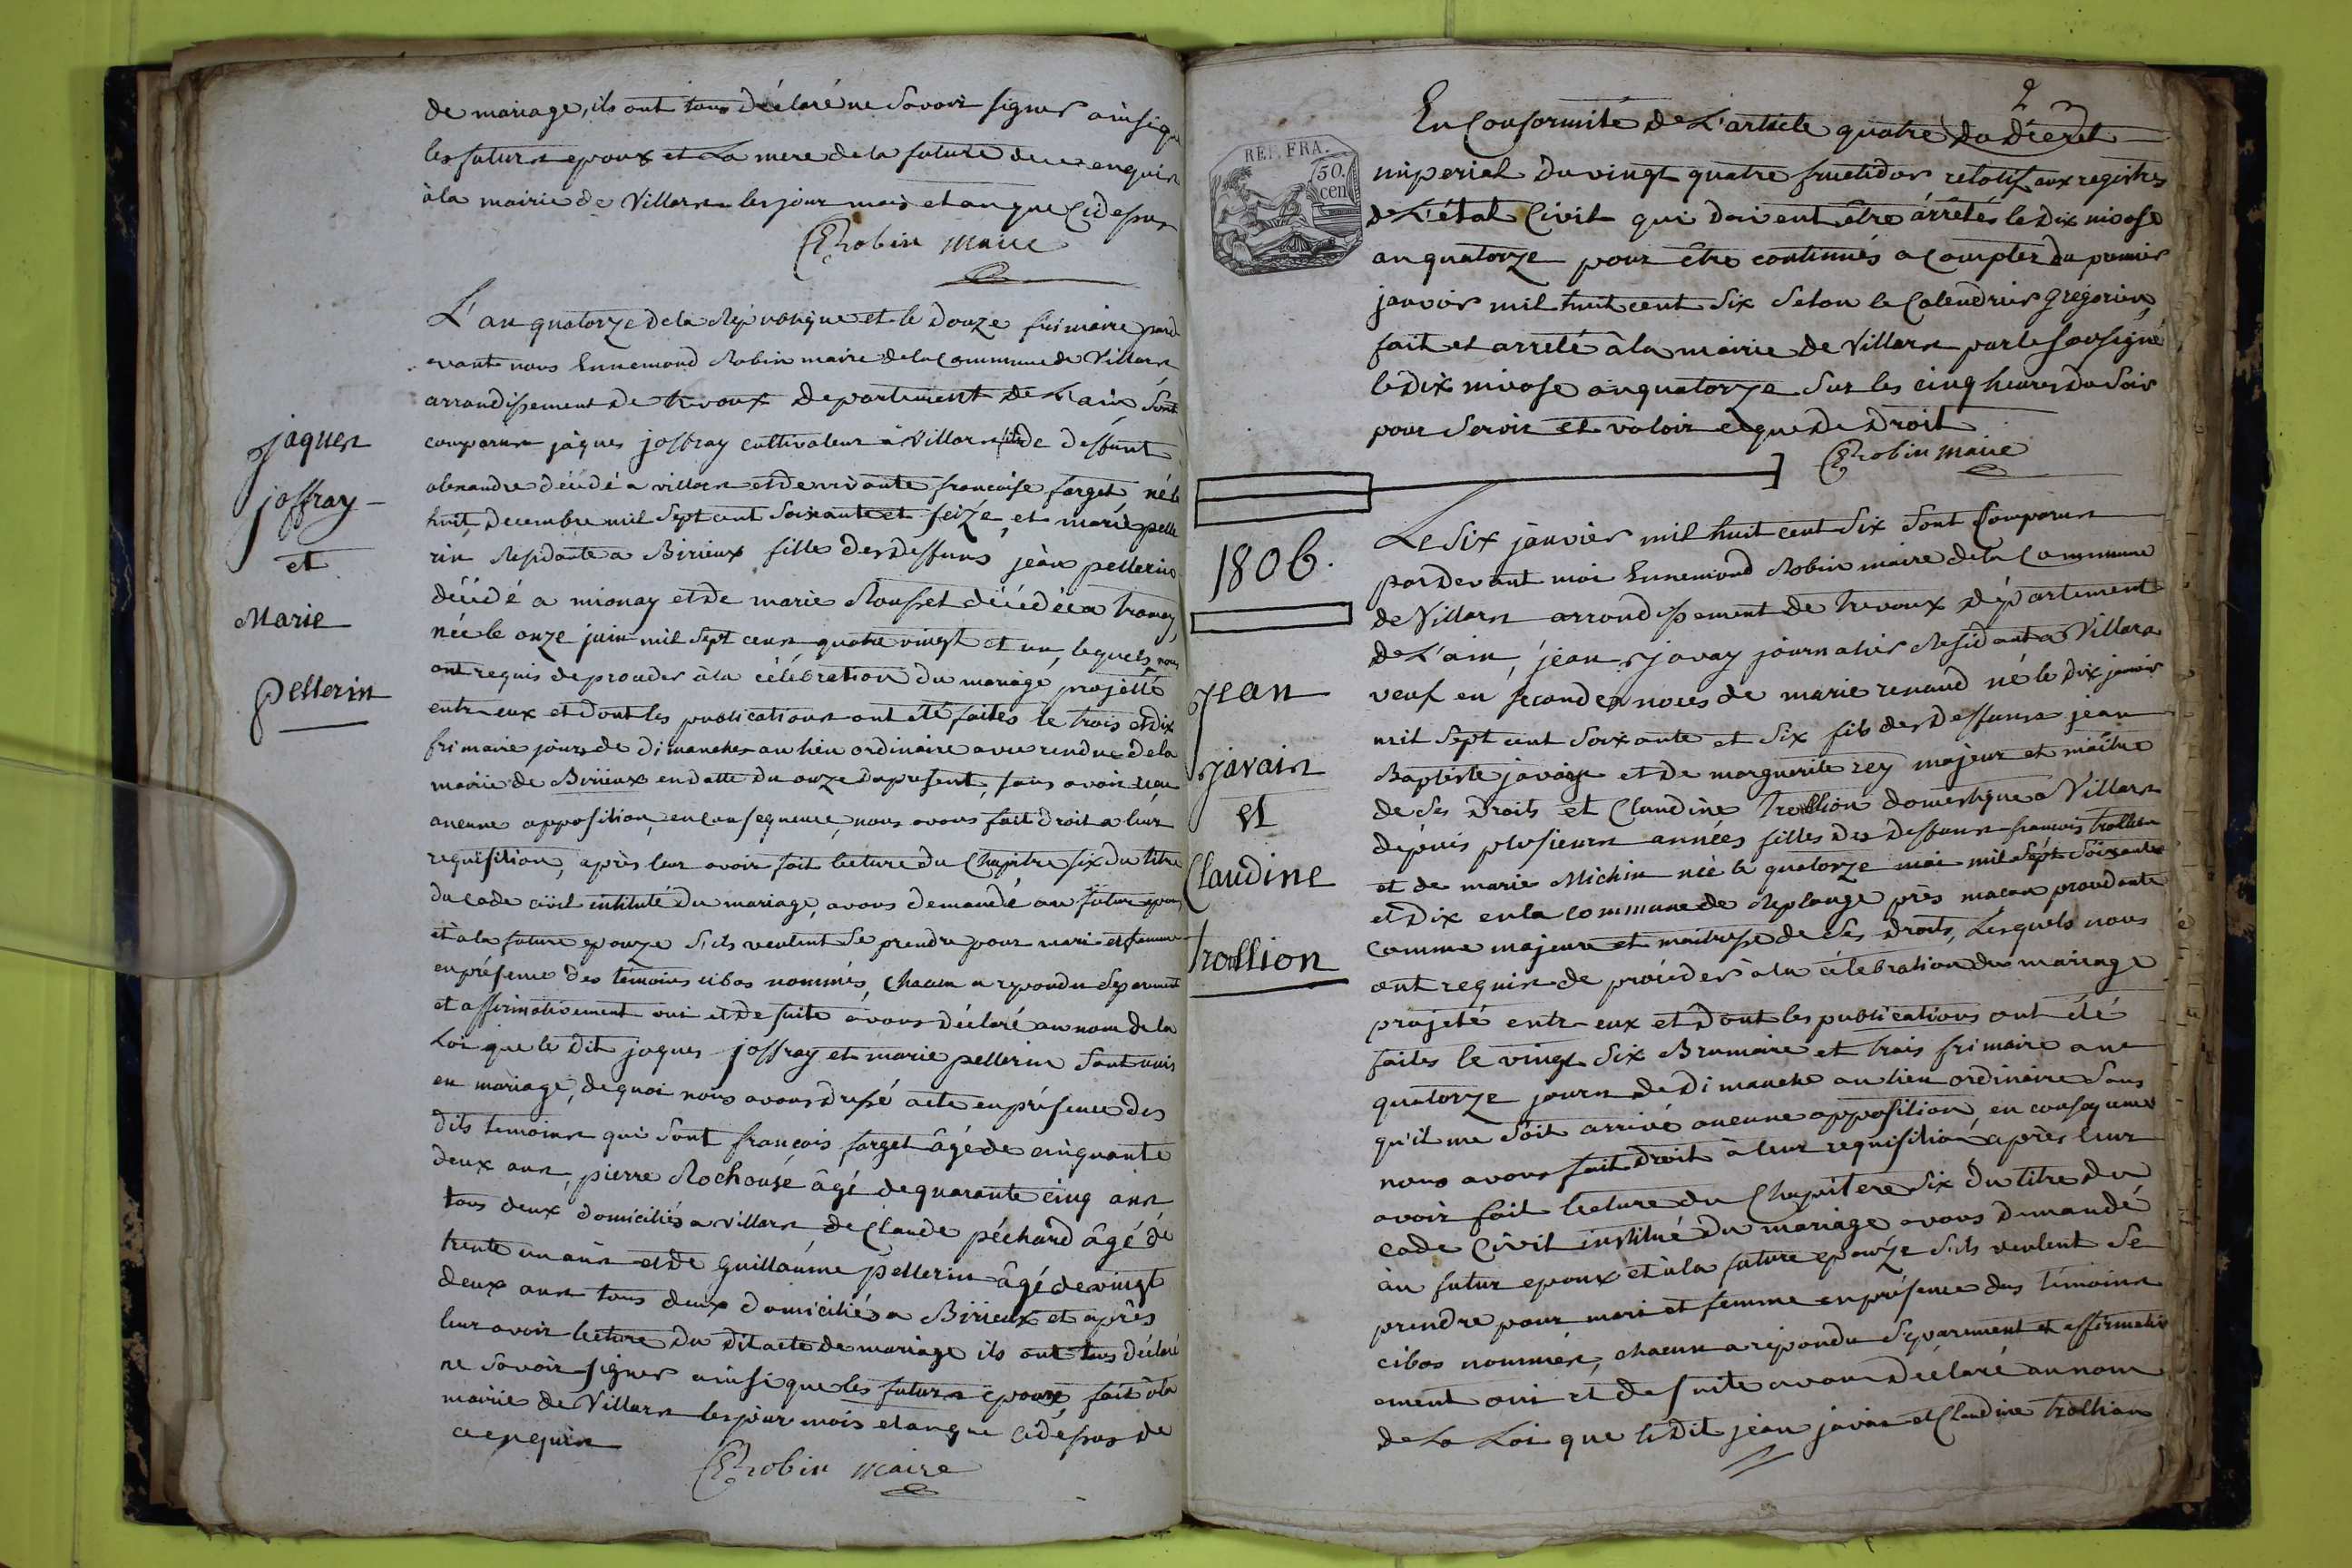 de mariage, ils ont tous déclaré ne savoir signer ainsi que
les futurs epoux et la mere de la future de ce enquis
à la mairie de Villars les jour mois et an que ci dessus
E Robin maire
L'an quatorze de la République et le douze frimaire pard
evant nous Ennemond Robin maire de la commune de Villars
arrondissement de trevoux departement de l'ain sont
comparus jâques joffray cultivateur à Villars fils de deffunt
alexandre décédé a villars et de vivante françoise farget né le
huit decembre mil sept cent soixante et seize, et marie pelle
rin Residante a Birieux fille des deffuns jean pellerin
décédé a mionay et de marie Rousset décédée a
née le onze juin mil sept cens quatre vingt et un, lequels nous
ont requis de proceder à la célébration du mariage projetté
entre eux et dont les publications ont été faites le trois et dix
frimaire jours de dimanches au lieu ordinaire avec rendue de la
mairie de Birieux en datte du onze du present, sans avoir
aucune opposition, en consequence, nous avons fait droit a leur
requisition, après leur avoir fait lecture du Chapitre six du titre
du code civil institulé du mariage, avons demandé au futur epoux
et à la future epouze s'ils veulent se prendre pour mari et femme
en présence des témoins cibas nommés, chacun a repondu séparement
et affirmativement oui et de suite avons déclaré au nom de la
Loi que le dit jaques joffray et marie pellerin sont unis
en mariage, de quoi nous avons dressé acte en présence des
dits temoins qui sont françois farget âgé de cinquante
deux ans, pierre Rochousé âgé de quarante cinq ans
tous deux domiciliés a villars de Claude péchard âgé de
trente un ans et de Guillaume pellerin âgé de vingt
deux ans tous deux domiciliés a Birieux et après
leur avoir lecture du dit acte de mariage ils ont tous déclaré
ne savoir signer ainsi que les futurs epoux, fait à la
mairie de Villars les jour mois et an que ci dessus de
ce enquis
E Robin maire
jaques
joffray
et
Marie
pellerin
2
En Conformité de L'article quatre du décret
imperial du vingt quatre fructidor relatif aux registres
de L'état Civil qui doivent être arrêtés le dix nivose
an quatorze pour être continués a compter du premier
janvier mil huit cent six selon le Calendrier Grégorien,
fait et arreté à la mairie de Villars par le soussigné
le dix nivose an quatorze sur les cinq heures du soir
pour servir et valoir ce que de Droit
E Robin maire
REP. FRA.
50.
cen
1806.
Le six janvier mil huit cent six sont comparus
par devant moi Ennemond Robin maire de la Commune
de Villars arrondissement de trevoux département
de L'ain, jean javay journalier Residant a Villars
veuf en secondes noces de marie renaud né le dix janvier
mil sept cent soixante et six fils des deffuns jean
Baptiste javay et de marguerite rey majeur et maître
de ses droits et Claudine trollion domestique a Villars
depuis plusieurs années filles des deffuns françois trollion
et de marie Michin née le quatorze mai mil sept soixante
et dix en la commune de Replonge près macon procédante
comme majeure et maitresse de ses droits, Lesquels nous
ont requis de procéder à la célébration du mariage
projeté entre eux et dont les publications ont été
faites le vingt six Brumaire et trois frimaire an
quatorze jours de dimanche au lieu ordinaire sans
qu'il me soit arrivé aucune opposition, en consequence
nous avons fait droit à leur requisition, après leur
avoir fait lecture du Chapitere six du titre du
code Civil institué du mariage avons demandé
au futur epoux et à la future epouze s'ils veulent se
prendre pour mari et femme en présence des témoins
cibas nommés, chacun a répondu séparement et affirmativ
ement oui et de suite avons déclaré au nom
de la Loi que le dit jean javai et Claudine trollion
jean
javain
et
Claudine
trollion